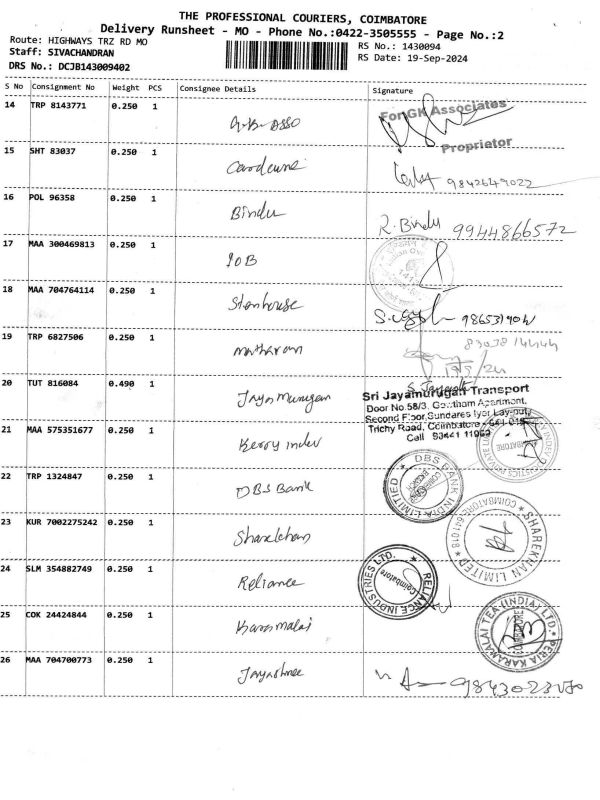 THE PROFESSIONAL COURIERS, COIMBATORE
Delivery Runsheet - MO - Phone No.:0422-3505555 - Page No.:2
Route: HIGHWAYS TRZ RD MO
Staff: SIVACHANDRAN
DRS No.: DCJB143009402
RS No.: 1430094
RS Date: 19-Sep-2024
S No Consignment No Weight PCS Consignee Details Signature
14 TRP 8143771 0.250 1
For GK Associates
Proprietor
15 SHT 83037 0.250 1
9842649022
16 POL 96358 0.250 1 Bindu R. Bindu 9944866572
17 MAA 300469813 0.250 1 IOB
18 MAA 704764114 0.250 1 Stonhouse
19 TRP 6827506 0.250 1
20 TUT 816084 0.490 1
Sri Jayamurugan Transport
Door No.58/3, Gowtham Apartment,
Second Floor, Sundares Iyer Lay-out,
Trichy Road, Coimbatore - 641 018
Cell 93441 11963
21 MAA 575351677 0.250 1 Kerry Indev
22 TRP 1324847 0.250 1 DBS Bank
DBS BANK INDIA LIMITED
23 KUR 7002275242 0.250 1 Sharekhan
SHAREKHAN LIMITED
COIMBATORE 641 018
24 SLM 354882749 0.250 1 Reliance
RELIANCE INDUSTRIES LTD.
Coimbatore
25 COK 24424844 0.250 1 Karamalai
PERIA KARAMALAI TEA (INDIA) LTD.
26 MAA 704700773 0.250 1 Jayashree